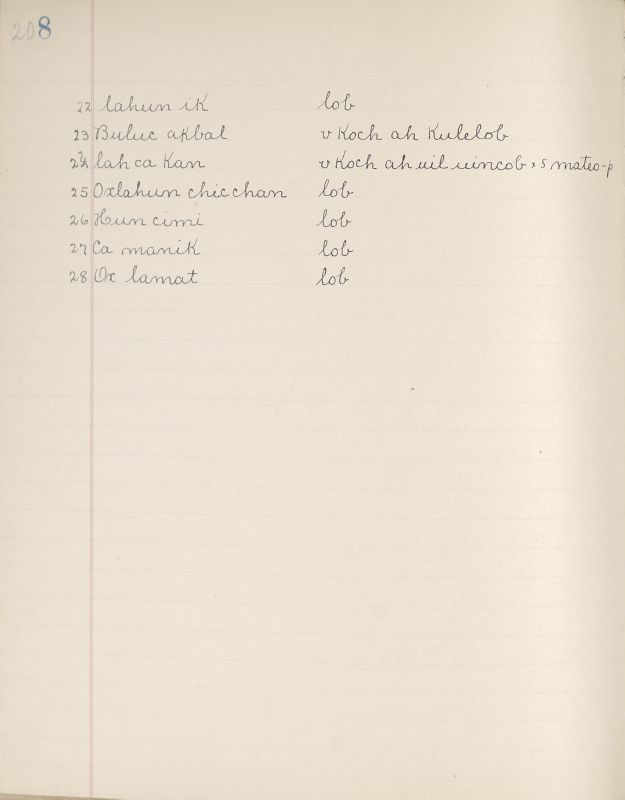 208
22 lahun ik lob
23 Buluc akbal v Koch ah Kulelob
24 lah ca Kan v Koch ah uil uincob × s mateo-p
25 Oxlahun chicchan lob
26 Hun cimi lob
27 Ca manik lob
28 Ox lamat lob